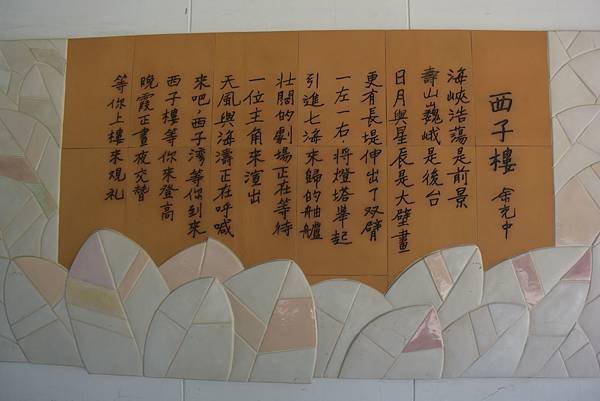 西子樓 余光中
海峽浩蕩是前景
壽山巍峨是後台
日月與星辰是大壁畫
更有長堤伸出了双臂
一左一右,將燈塔舉起
引進七海來歸的舳艫
壯闊的劇場正在等待
一位主角來演出
天風與海濤正在呼喊
來吧,西子灣等你到來
西子樓等你來登高
晚霞正晝夜交替
等你上樓來觀礼